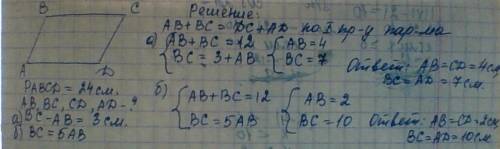 B C
A D
PABCD = 24см.
AB, BC, CD, AD - ?
а) BC - AB = 3см.
б) BC = 5AB
Решение:
AB + BC = DC + AD - по I пр-у пар-ма
а) { AB + BC = 12 { AB = 4
BC = 3 + AB BC = 7
Ответ: AB = CD = 4см
BC = AD = 7см.
б) { AB + BC = 12 { AB = 2
BC = 5AB BC = 10
Ответ: AB = CD = 2см
BC = AD = 10см.